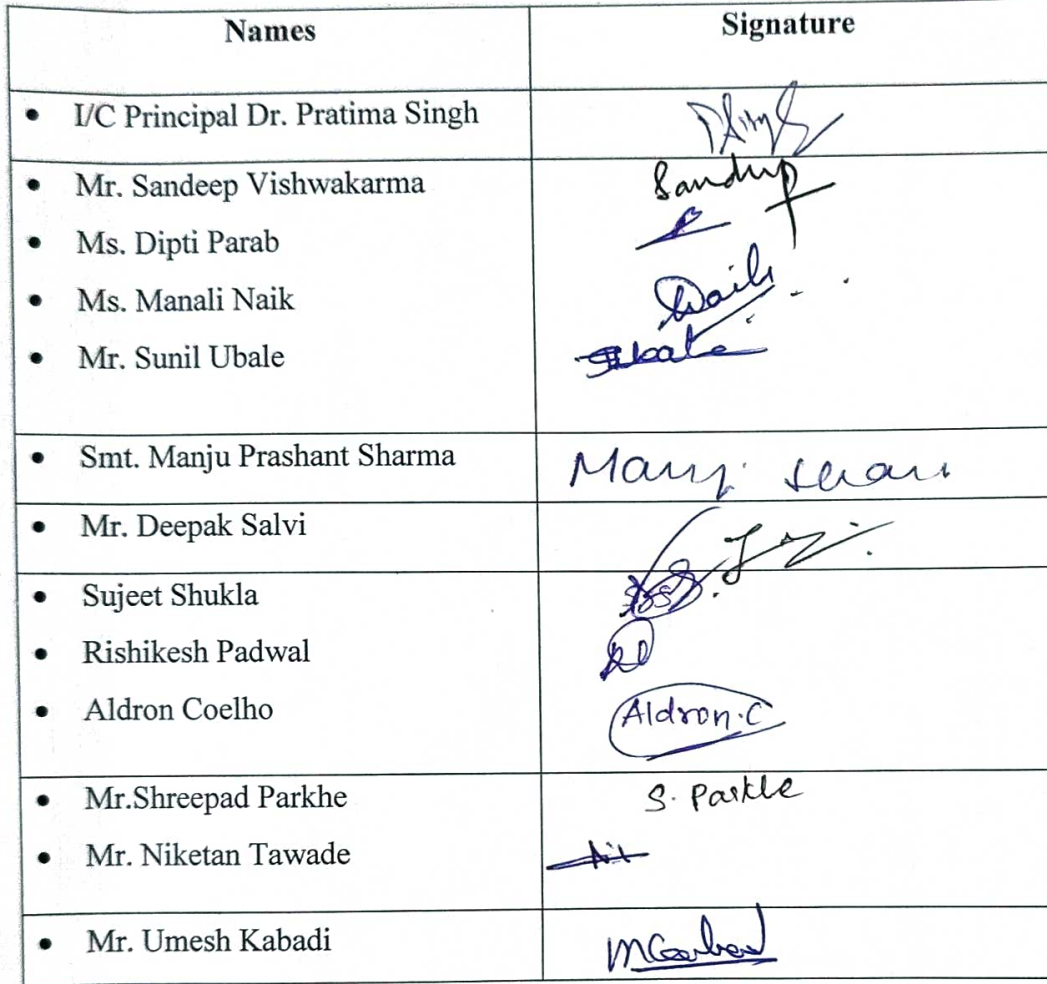 Names Signature
• I/C Principal Dr. Pratima Singh
• Mr. Sandeep Vishwakarma Sandeep
• Ms. Dipti Parab
• Ms. Manali Naik Naik
• Mr. Sunil Ubale
• Smt. Manju Prashant Sharma
• Mr. Deepak Salvi
• Sujeet Shukla
• Rishikesh Padwal
• Aldron Coelho Aldron.C
• Mr.Shreepad Parkhe S. Parkhe
• Mr. Niketan Tawade
• Mr. Umesh Kabadi